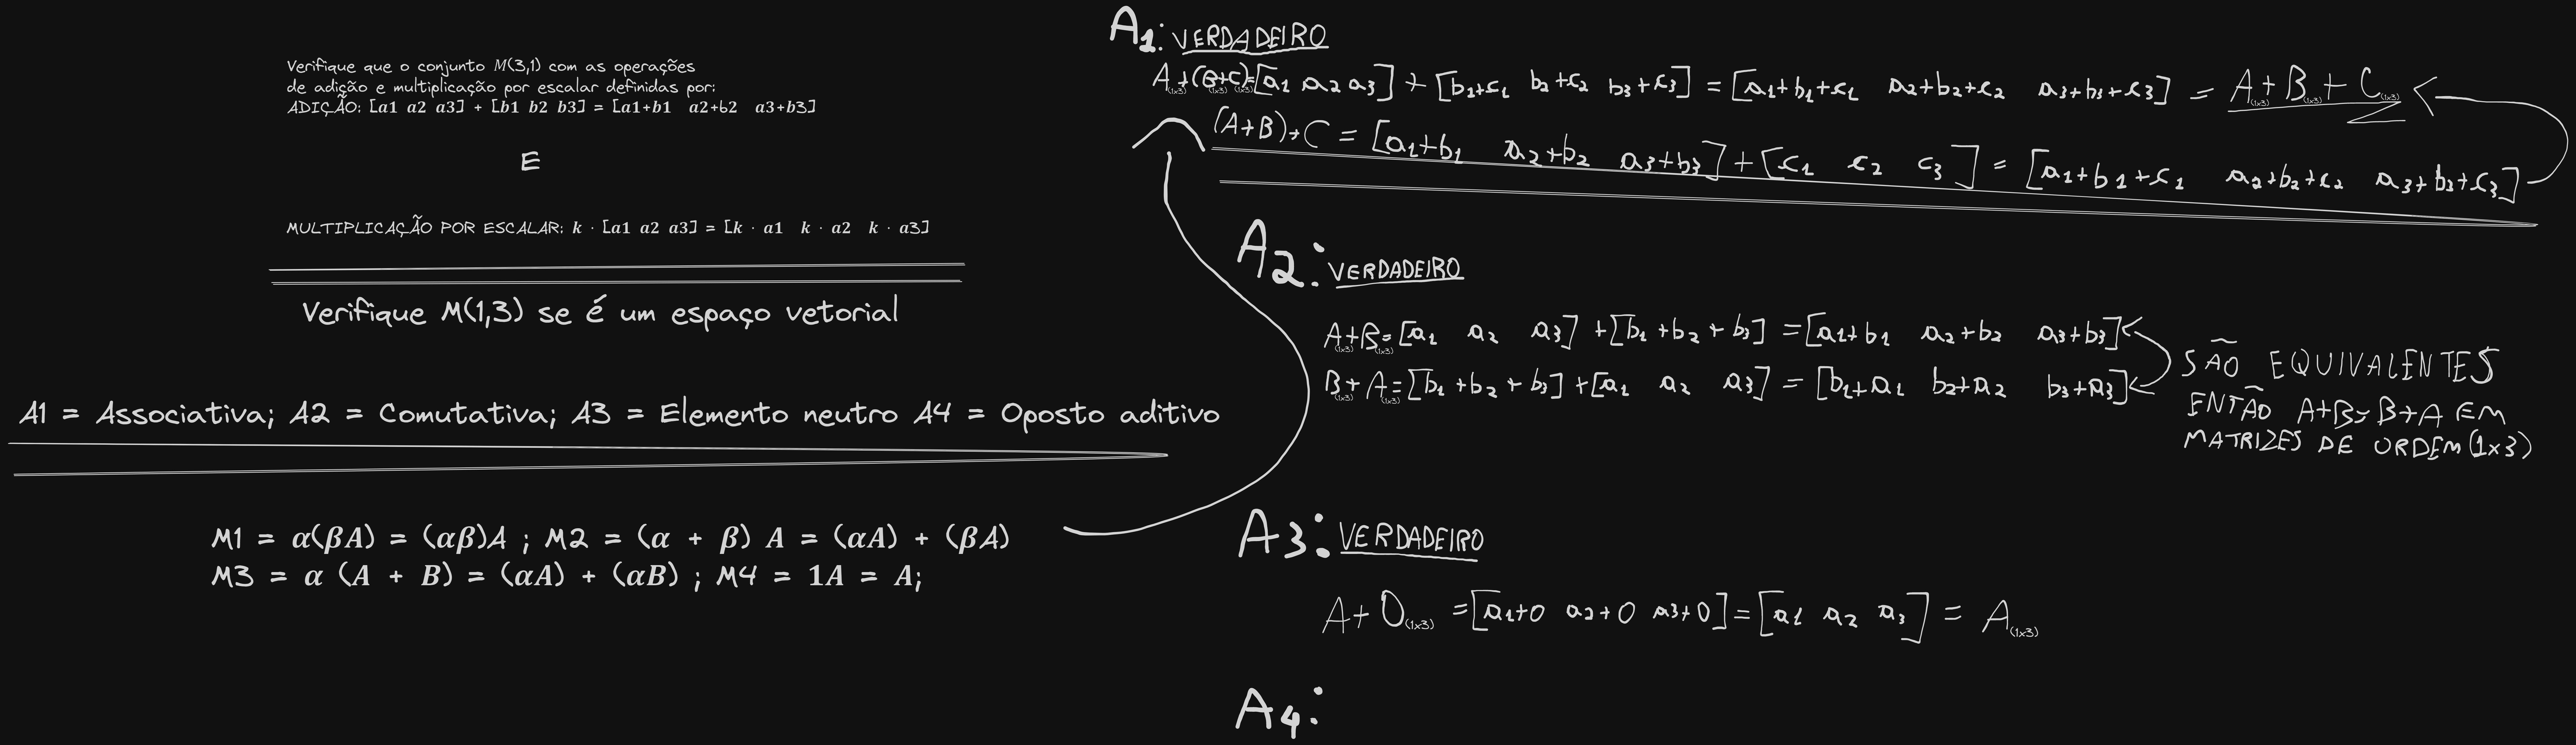 Verifique que o conjunto M(3,1) com as operações
de adição e multiplicação por escalar definidas por:
ADIÇÃO: [a1 a2 a3] + [b1 b2 b3] = [a1+b1 a2+b2 a3+b3]
E
MULTIPLICAÇÃO POR ESCALAR: k · [a1 a2 a3] = [k · a1 k · a2 k · a3]
Verifique M(1,3) se é um espaço vetorial
A1 = Associativa; A2 = Comutativa; A3 = Elemento neutro A4 = Oposto aditivo
M1 = α(βA) = (αβ)A ; M2 = (α + β) A = (αA) + (βA)
M3 = α (A + B) = (αA) + (αB) ; M4 = 1A = A;
A1: VERDADEIRO
A(1x3)+(B(1x3)+C(1x3))=[a1 a2 a3] + [b1+c1 b2+c2 b3+c3] = [a1+b1+c1 a2+b2+c2 a3+b3+c3] = A(1x3)+B(1x3)+C(1x3)
(A+B)+C = [a1+b1 a2+b2 a3+b3] + [c1 c2 c3] = [a1+b1+c1 a2+b2+c2 a3+b3+c3]
A2: VERDADEIRO
A(1x3)+B(1x3)=[a1 a2 a3] +[b1 +b2 + b3] =[a1+b1 a2+b2 a3+b3]
B(1x3)+A(1x3)=[b1 +b2 + b3] +[a1 a2 a3] = [b1+a1 b2+a2 b3+a3]
SÃO EQUIVALENTES
ENTÃO A+B=B+A EM
MATRIZES DE ORDEM(1x3)
A3: VERDADEIRO
A+0(1x3) =[a1+0 a2+0 a3+0]=[a1 a2 a3] = A(1x3)
A4: